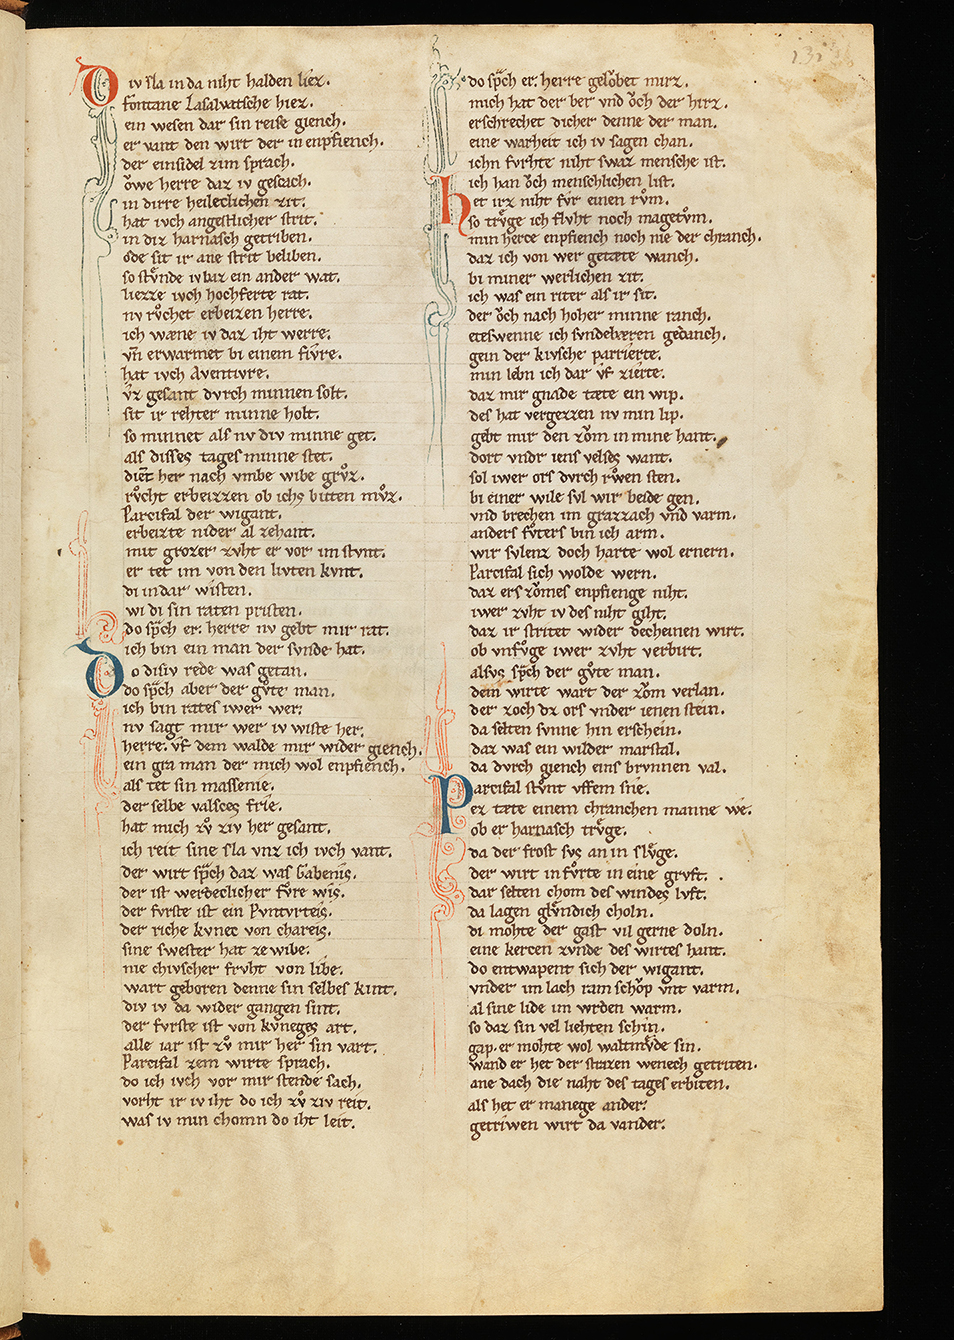 Div sla in da niht halden liez.
fontane Lasalvatsche hiez.
ein wesen dar sin reise giench.
er vant den wirt der in enpfiench.
der einsidel zim sprach.
ôwe herre daz iv gescach.
in dirre heileclichen zit.
hat ivch angestlicher strit.
in diz harnasch getriben.
ode sit ir ane strit beliben.
so stvͦnde iv baz ein ander wat.
liezze ivch hochferte rat.
nv rvͦchet erbeizen herre.
ich wæne iv daz iht werre.
vn̄ erwarmet bi einem fivre.
hat ivch Aventivre.
vz gesant dvrch minnen solt.
sit ir rehter minne holt.
so minnet als nv div minne get.
als disses tages minne stet.
dient her nach vmbe wibe grvͦz.
rvͦcht erbeizzen ob ichs bitten mvͦz.
Parcifal der wigant.
erbeizte nider al zehant.
mit grozer zvht er vor im stvnt.
er tet im von den livten kvnt.
di in dar wisten.
wi di sin raten pristen.
do sp̄ch er: herre nv gebt mir rat.
ich bin ein man der svnde hat.
Do disiv rede was getan.
do sp̄ch aber der gvͦte man.
ich bin rates iwer wer:
nv sagt mir wer iv wiste her:
herre: vf dem walde mir wider giench.
ein gra man der mich wol enpfiench.
als tet sin massenie.
der selbe valsces frie.
hat mich zvͦ ziv her gesant.
ich reit sine sla vnz ich ivch vant.
der wirt sp̄ch daz was Gabenis.
der ist werdeclicher fvͦre wis.
der fvrste ist ein Pvntvrteis.
der riche kvnec von chareis.
sine swester hat ze wibe.
nie chivscher frvht von libe.
wart geboren denne sin selbes kint.
div iv da wider gangen sint.
der fvrste ist von kvneges art.
alle iar ist zvͦ mir her sin vart.
Parcifal zem wirte sprach.
do ich ivch vor mir stende sach.
vorht ir iv iht do ich zvͦ ziv reit.
was iv min chomn do iht leit.
do sp̄ch er: herre gelôbet mirz.
mich hat der ber vnd ôch der hirz.
erschrechet dicher denne der man.
eine warheit ich iv sagen chan.
ichn fvrhte niht swaz mensche ist.
ich han ôch menschlichen list.
het irz niht fvr einen rvͦm.
so trvͦge ich flvht noch magetvͦm.
min herce enpfiench noch nie der chranch.
daz ich von wer getæte wanch.
bi miner werlichen zit.
ich was ein riter als ir sit.
der ôch nach hoher minne ranch.
eteswenne ich svndebæren gedanch.
gein der kivsche parrierte.
min lebn ich dar vf zierte.
daz mir gnade tæte ein wip.
des hat vergezzen nv min lip.
gebt mir den zôm in mine hant.
dort vndr iens velses want.
sol iwer ors dvrch rvͦwen sten.
bi einer wile svl wir beide gen.
vnd brechen im grazzach vnd varm.
anders fvͦters bin ich arm.
wir svlenz doch harte wol ernern.
Parcifal sich wolde wern.
daz ers zômes enpfienge niht.
iwer zvht iv des niht giht.
daz ir stritet wider decheinen wirt.
ob vnfvͦge iwer zvht verbirt.
alsvs sp̄ch der gvͦte man.
dem wirte wart der zôm verlan.
der zoch dz ors vnder ienen stein.
da selten svnne hin erschein.
daz was ein wilder marstal.
da dvrch giench eins brvnnen val.
Parcifal stvͦnt vffem sne.
Ez tæte einem chranchen manne we.
ob er harnasch trvͦge.
da der frost svs an in slvͦge.
der wirt in fvͦrte in eine grvft.
dar selten chom des windes lvft.
da lagen glvͦndich choln.
di mohte der gast vil gerne doln.
eine kercen zvnde des wirtes hant.
do entwapent sich der wigant.
vnder im lach ram schôp vnt varm.
al sine lide im wrden warm.
so daz sin vel liehten schin.
gap. er mohte wol waltmvͦde sin.
wand er het der strazen wenech geriten.
ane dach die naht des tages erbiten.
als het er manege ander:
getriwen wirt da vander: